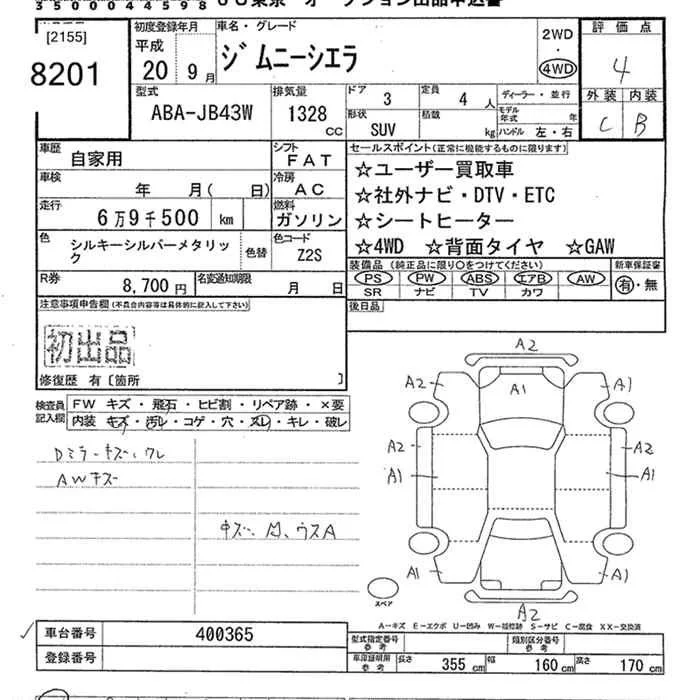 35000044598
[2155]
8201
初度登録年月
平成
20 9月
車名・グレード
ジムニーシエラ
2WD
・
4WD
評価点
4
外装 内装
C B
型式
ABA-JB43W
排気量
1328
CC
ドア 3
定員 4 人
形状
SUV
積載
kg
ディーラー・並行
モデル年式 年
ハンドル 左・右
車歴
自家用
シフト
FAT
車検
年 月( 日)
冷房
AC
走行
6万9千500 km
燃料
ガソリン
色
シルキーシルバーメタリック
色替
色コード
Z2S
R券
8,700 円
名変通知期限
月 日
セールスポイント(正常に機能するものに限ります)
☆ユーザー買取車
☆社外ナビ・DTV・ETC
☆シートヒーター
☆4WD ☆背面タイヤ ☆GAW
装備品(純正品に限り○をつけてください)
PS PW ABS エアB AW
SR ナビ TV カワ
新車保証書
有・無
後日品
注意事項申告欄(不具合内容等は具体的に記入して下さい)
初出品
修復歴 有〔箇所 〕
検査員記入欄
FW キズ・飛石・ヒビ割・リペア跡・×要
内装 キズ・汚レ・コゲ・穴・スレ・キレ・破レ
Dミラーキズ、ワレ
AWキズ
キズ、凹、ウスA
A2
A2
A1
A1
A2
A1
A2
A1
A1
A1
A2
スペア
A-キズ E-エクボ U-凹み W-補修跡 S-サビ C-腐食 XX-交換済
車台番号
400365
登録番号
型式指定番号
参考
類別区分番号
参考
車庫証明用
参考
長さ 355 cm 幅 160 cm 高さ 170 cm